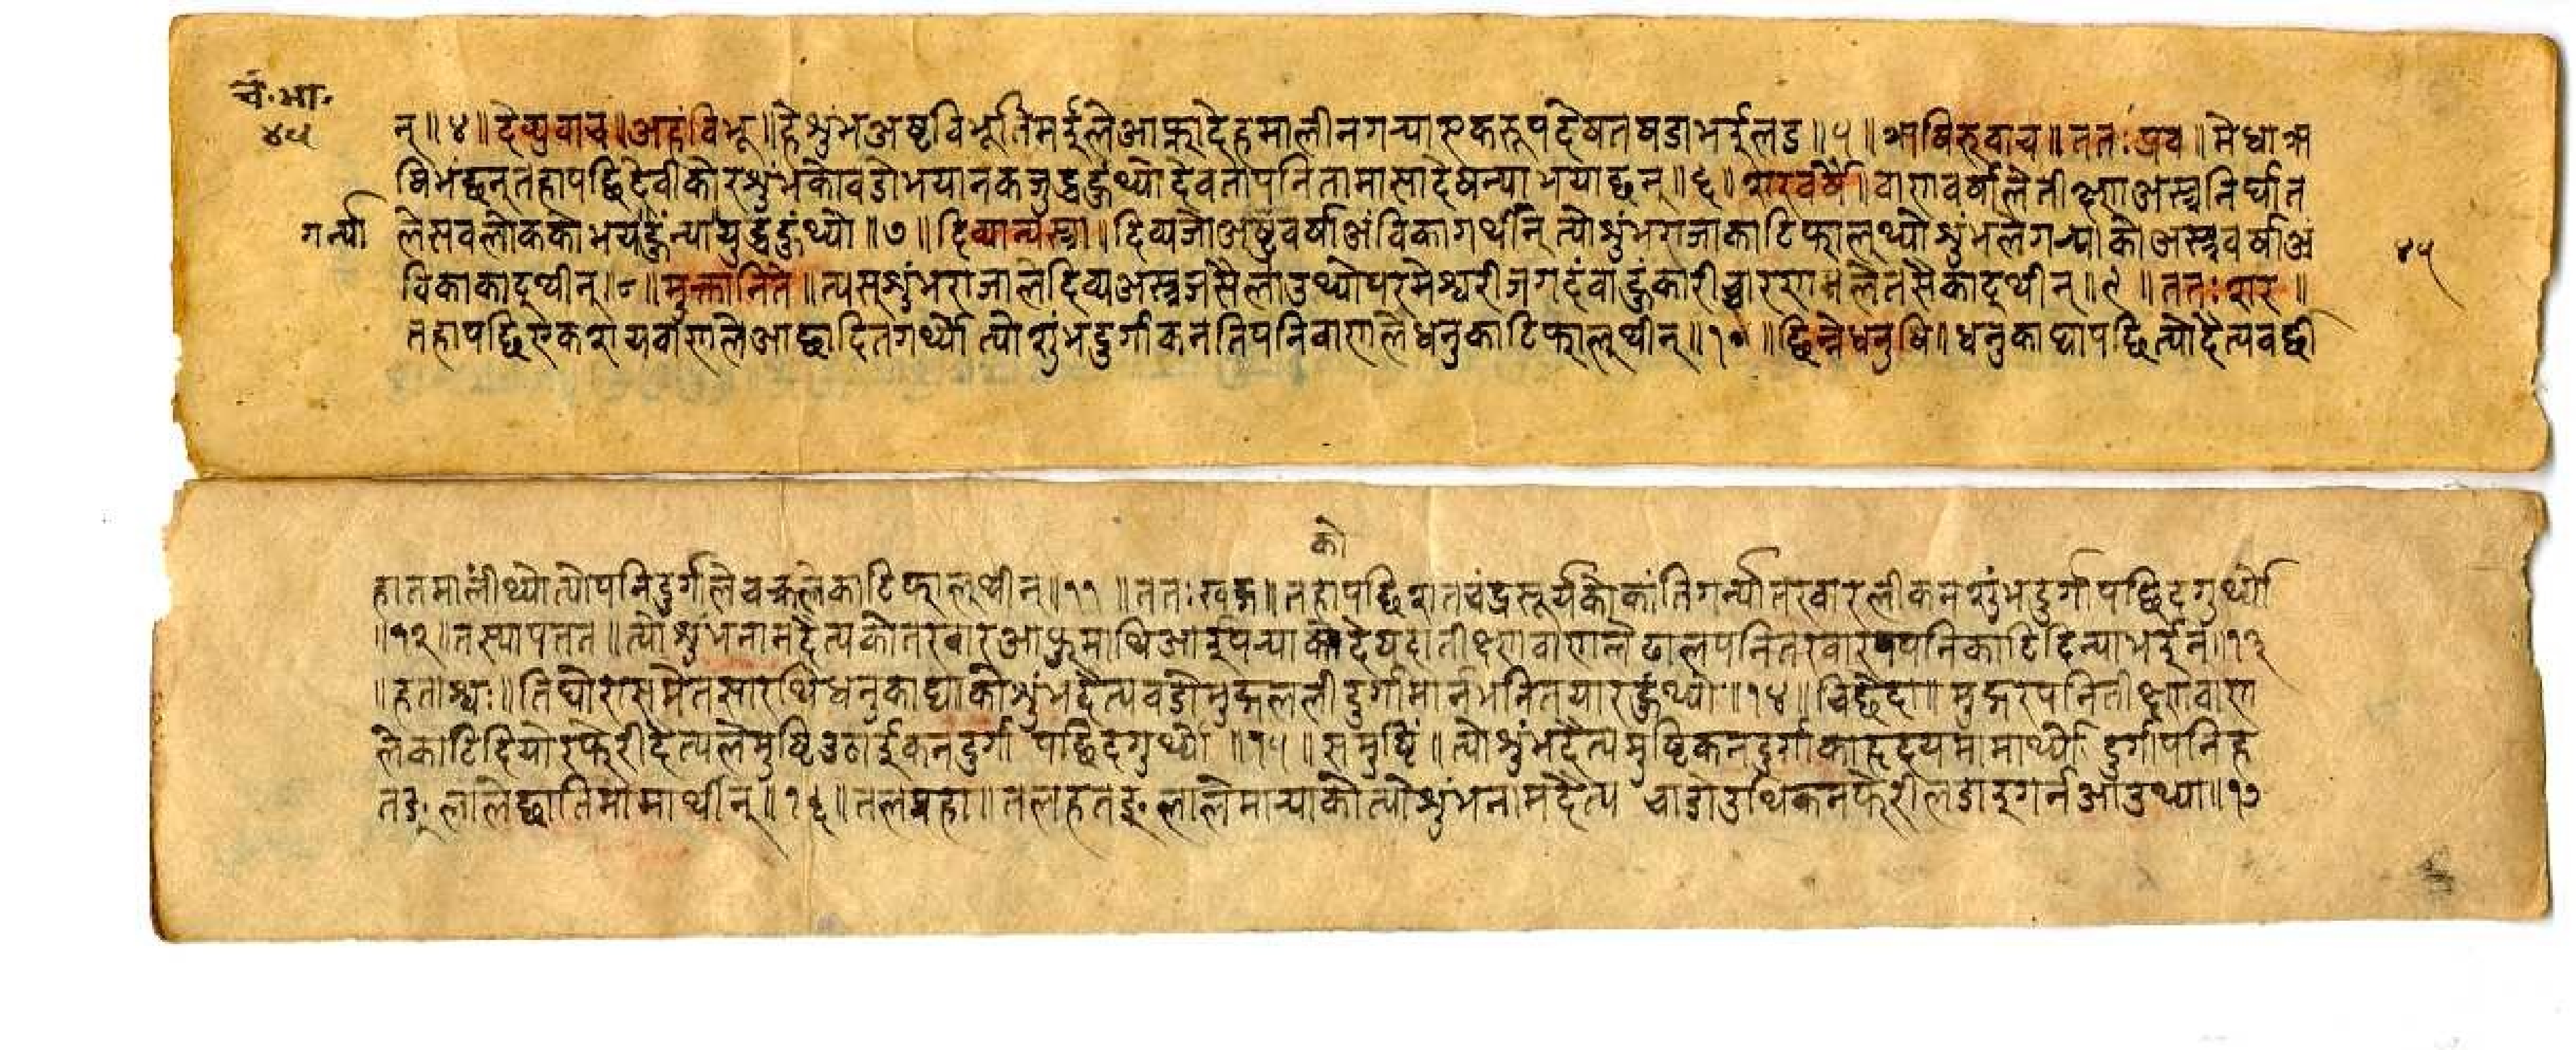 चं.भा.
४५
न्॥४॥देव्युवाच॥अहंविभू॥हेशुंभअष्टविभूतिमर्इलेआफ्नादेहमालीनगर्‍याएकरूपदेषतषडाभर्इलड॥५॥ऋषिरुवाच॥ततःप्रव॥मेधाऋ
षिभंछन्तहापछिदेवीकोरशुंभकोवडोभयानकजुद्धहुंथ्योदेवतापनितामासादेषन्याभयाछन्॥६॥शरवर्षै॥वाणवर्षालेतीक्ष्णअस्त्रनिर्घात
गर्न्या
लेसवलोककोभयहुंन्यायुद्धहुंथ्यो॥७॥दिव्यान्यस्त्रा॥दिव्यजोअस्त्रवर्षाअंविकागर्थीन्त्योशुंभराजाकाटिफाल्थ्योशुंभलेगर्‍याकोअस्त्रवर्षाअं
४५
विकाकाट्थीन्॥८॥मुक्तानिते॥त्यसशुंभराजालेदिव्यअस्त्रजसैलाउथ्योपरमेश्वरीजगदंवाहुंकारीच्चारणलेतसैकाट्थीन्॥९॥ततःशर॥
तहापछिएकशयवाणलेआछादितगर्थ्योत्योशुंभदुर्गाकनतिपनिवाणलेधनुकाटिफाल्थीन्॥१०॥छिन्नेधनुषि॥धनुकाट्यापछित्योदैत्यवर्छी
को
हातमालीथ्योत्योपनिदुर्गालेचक्रलेकाटिफाल्थीन्॥११॥ततःखड्ग॥तहापछिशतचंद्रसूर्यकोकांतिगर्न्यातरवारलीकनशुंभदुर्गापछिदगुर्थ्यो
॥१२॥तस्यापतत॥त्योशुंभनामदैत्यकोतरवारआफुमाथिआर्इपर्‍याकोदेषदातीक्ष्णवाणलेढालपनितरवारपनिकाटिदिन्याभर्इन्॥१३
॥हताश्वः॥तिघोरासमेतसारथिधनुकाट्याकोशुंभदैत्यवडोमुद्गललीदुर्गामार्नभनितयारहुंथ्यो॥१४॥चिछेदा॥मुद्गरपनितीक्ष्णवाण
लेकाटिदियोरफेरीदैत्यलेमुष्टिउठार्इकनदुर्गापछिदगुर्थ्यो॥१५॥समुष्टिं॥त्योशुंभदैत्यमुष्टिकनदुर्गाकाहृदयमामार्थ्योदुर्गापनिह
तङ्लालेछातिमामार्थीन्॥१६॥तलप्रहा॥तलहतङ्लालेमार्‍याकोत्योशुंभनामदैत्यचाडोउथिकनफेरीलडाइगर्नआउथ्या॥१७